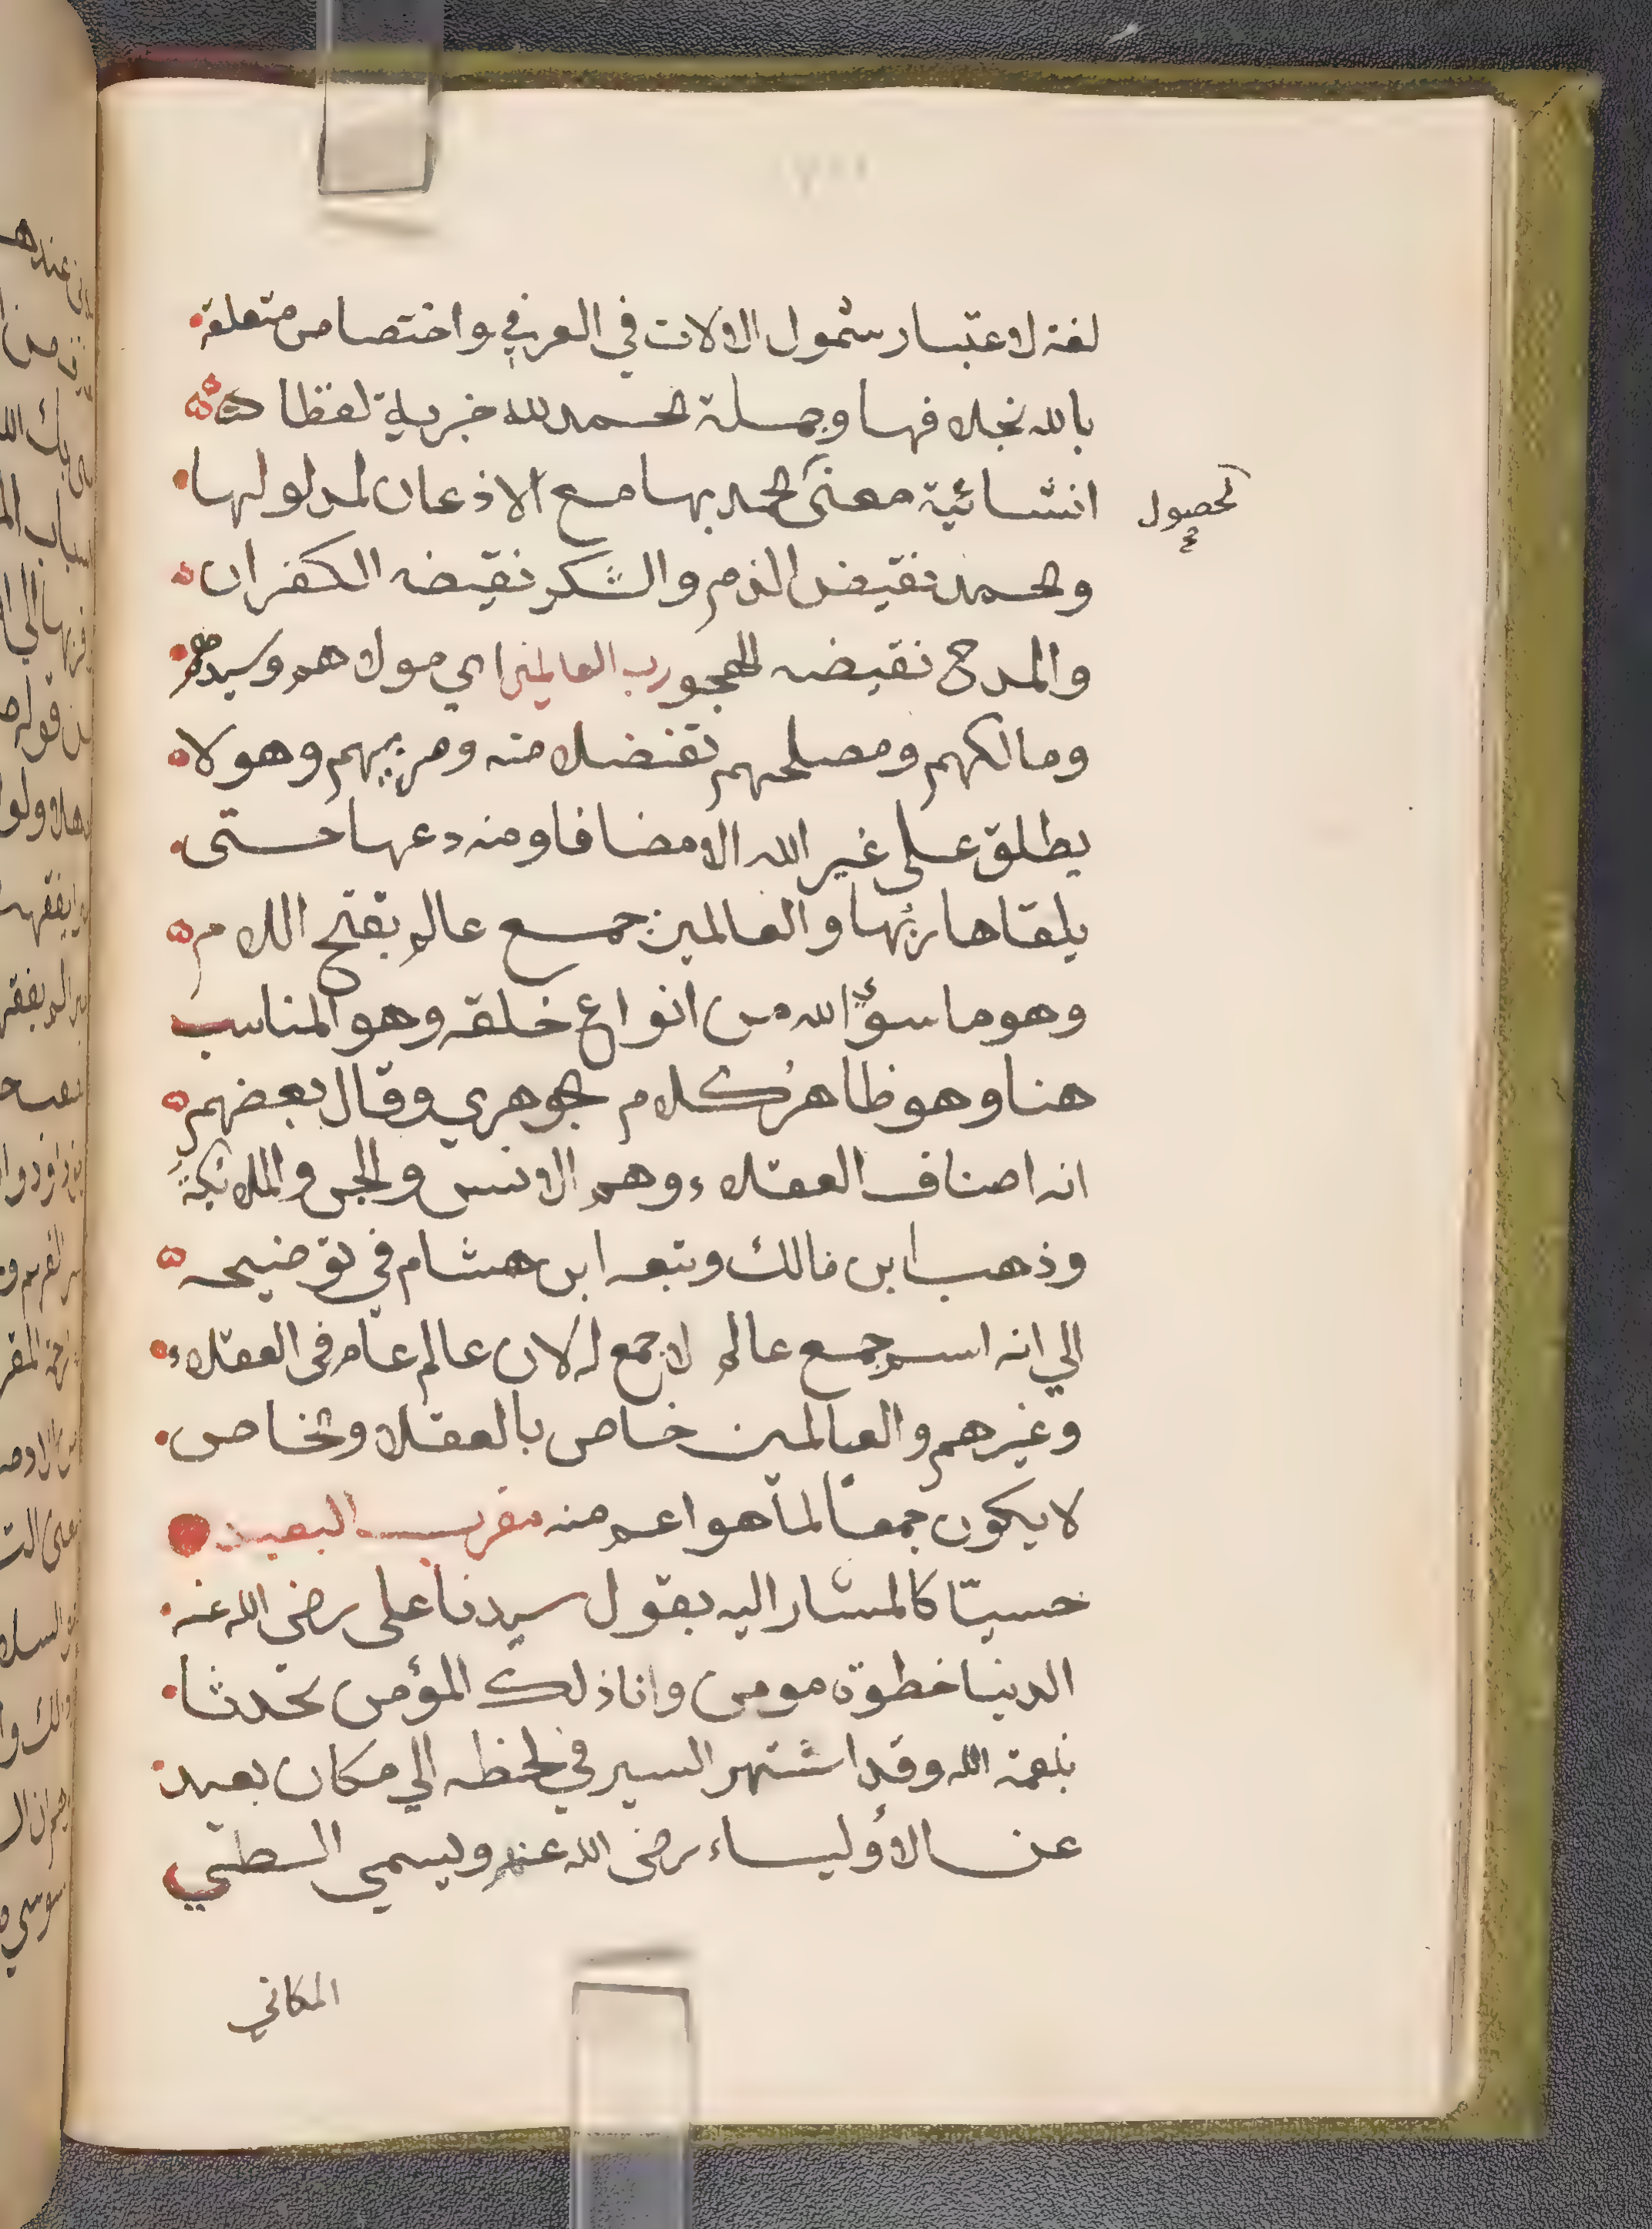 لغة لاعتبار شمول الالات في العرفي واختصاص متعلقة
بالله بخلافها وجملة الحمد لله خبرية لفظا
انشائية معنى الحمد بها مع الاذعان لمدلولها
لحصول
والحمد نقيض الذم والشكر نقيضه الكفران
والمدح نقيضه الهجو رب العالمين اي مولاهم وسيدهم
ومالكهم ومصلحهم تفضلا منه ومربيهم وهو لا
يطلق على غير الله الا مضافا ومنه دعها حتى
يلقاها ربها والعالمين جمع عالم بفتح اللام
وهو ما سوى الله من انواع خلقه وهو المناسب
هنا وهو ظاهر كلام الجوهري وقال بعضهم
انه اصناف العقلاء وهم الانس والجن والملائكة
وذهب ابن مالك وتبعه ابن هشام في توضيحه
الي انه اسم جمع عالم لا جمع له لان عالم عام في العقلاء
وغيرهم والعالمين خاص بالعقلا والخاص
لا يكون جمعا لما هو اعم منه مقرب البعيد
حسيا كالمشار اليه بقول سيدنا على رضى الله عنه
الدنيا خطوة مومن وانا ذلك المؤمن تحدثا
بنعمة الله وقد اشتهر السير في لحظه الي مكان بعيد
عن الأولياء رضى الله عنهم ويسمي الطي
المكاني